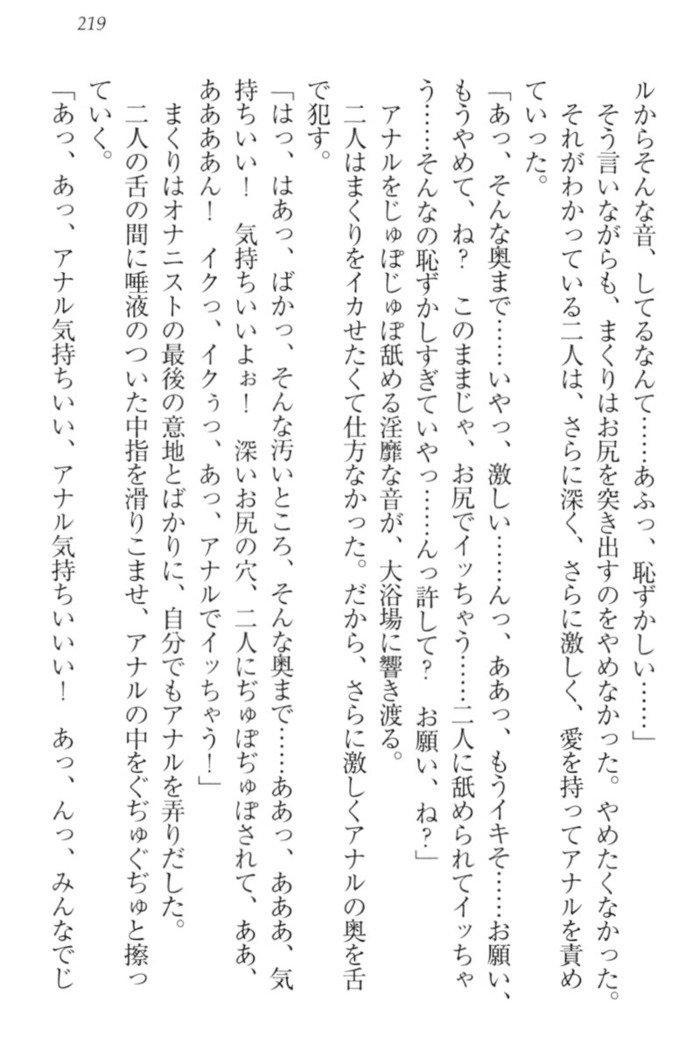 219
ルからそんな音、してるなんて……あふっ、恥ずかしい……」
そう言いながらも、まくりはお尻を突き出すのをやめなかった。やめたくなかった。
それがわかっている二人は、さらに深く、さらに激しく、愛を持ってアナルを責め
ていった。
「あっ、そんな奥まで……いやっ、激しい……んっ、ああっ、もうイキそ……お願い、
もうやめて、ね？　このままじゃ、お尻でイッちゃう……二人に舐められてイッちゃ
う……そんなの恥ずかしすぎていやっ……んっ許して？　お願い、ね？」
アナルをじゅぽじゅぽ舐める淫靡な音が、大浴場に響き渡る。
二人はまくりをイカせたくて仕方なかった。だから、さらに激しくアナルの奥を舌
で犯す。
「はっ、はあっ、ばかっ、そんな汚いところ、そんな奥まで……ああっ、あああ、気
持ちいい！　気持ちいいよぉ！　深いお尻の穴、二人にぢゅぽぢゅぽされて、ああ、
ああああん！　イクっ、イクぅっ、あっ、アナルでイッちゃう！」
まくりはオナニストの最後の意地とばかりに、自分でもアナルを弄りだした。
二人の舌の間に唾液のついた中指を滑りこませ、アナルの中をぐぢゅぐぢゅと擦っ
ていく。
「あっ、あっ、アナル気持ちいい、アナル気持ちいいい！　あっ、んっ、みんなでじ